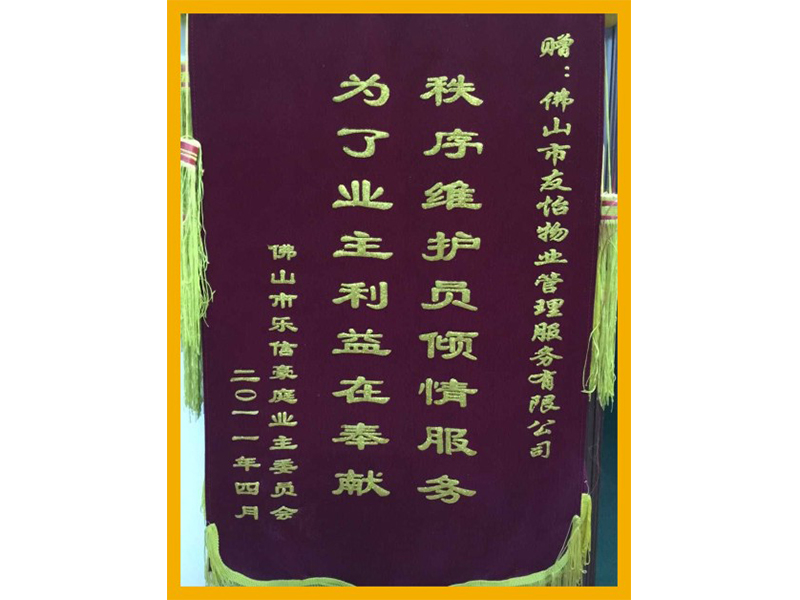 赠：佛山市友怡物业管理服务有限公司
秩序维护员倾情服务
为了业主利益在奉献
佛山市乐信豪庭业主委员会
二〇一一年四月